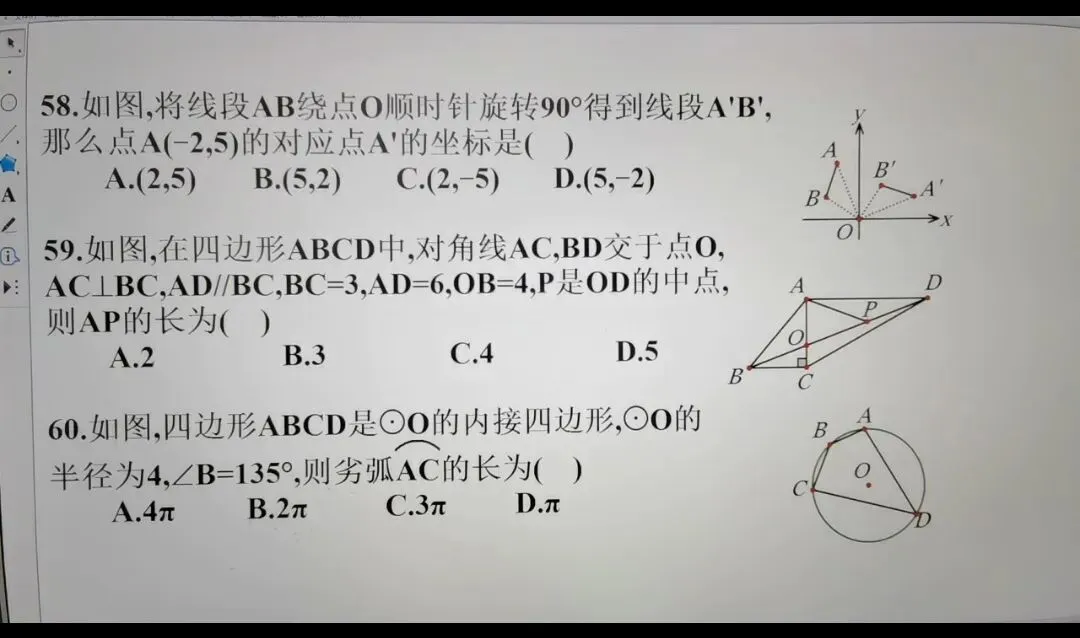 58.如图,将线段AB绕点O顺时针旋转90°得到线段A'B',
那么点A(-2,5)的对应点A'的坐标是(   )
A.(2,5) B.(5,2) C.(2,-5) D.(5,-2)
y
A
B'
A'
B
O
x
59.如图,在四边形ABCD中,对角线AC,BD交于点O,
AC⊥BC,AD//BC,BC=3,AD=6,OB=4,P是OD的中点,
则AP的长为(   )
A.2 B.3 C.4 D.5
A
D
P
O
B
C
60.如图,四边形ABCD是⊙O的内接四边形,⊙O的
半径为4,∠B=135°,则劣弧AC的长为(   )
A.4π B.2π C.3π D.π
A
B
O
C
D
A